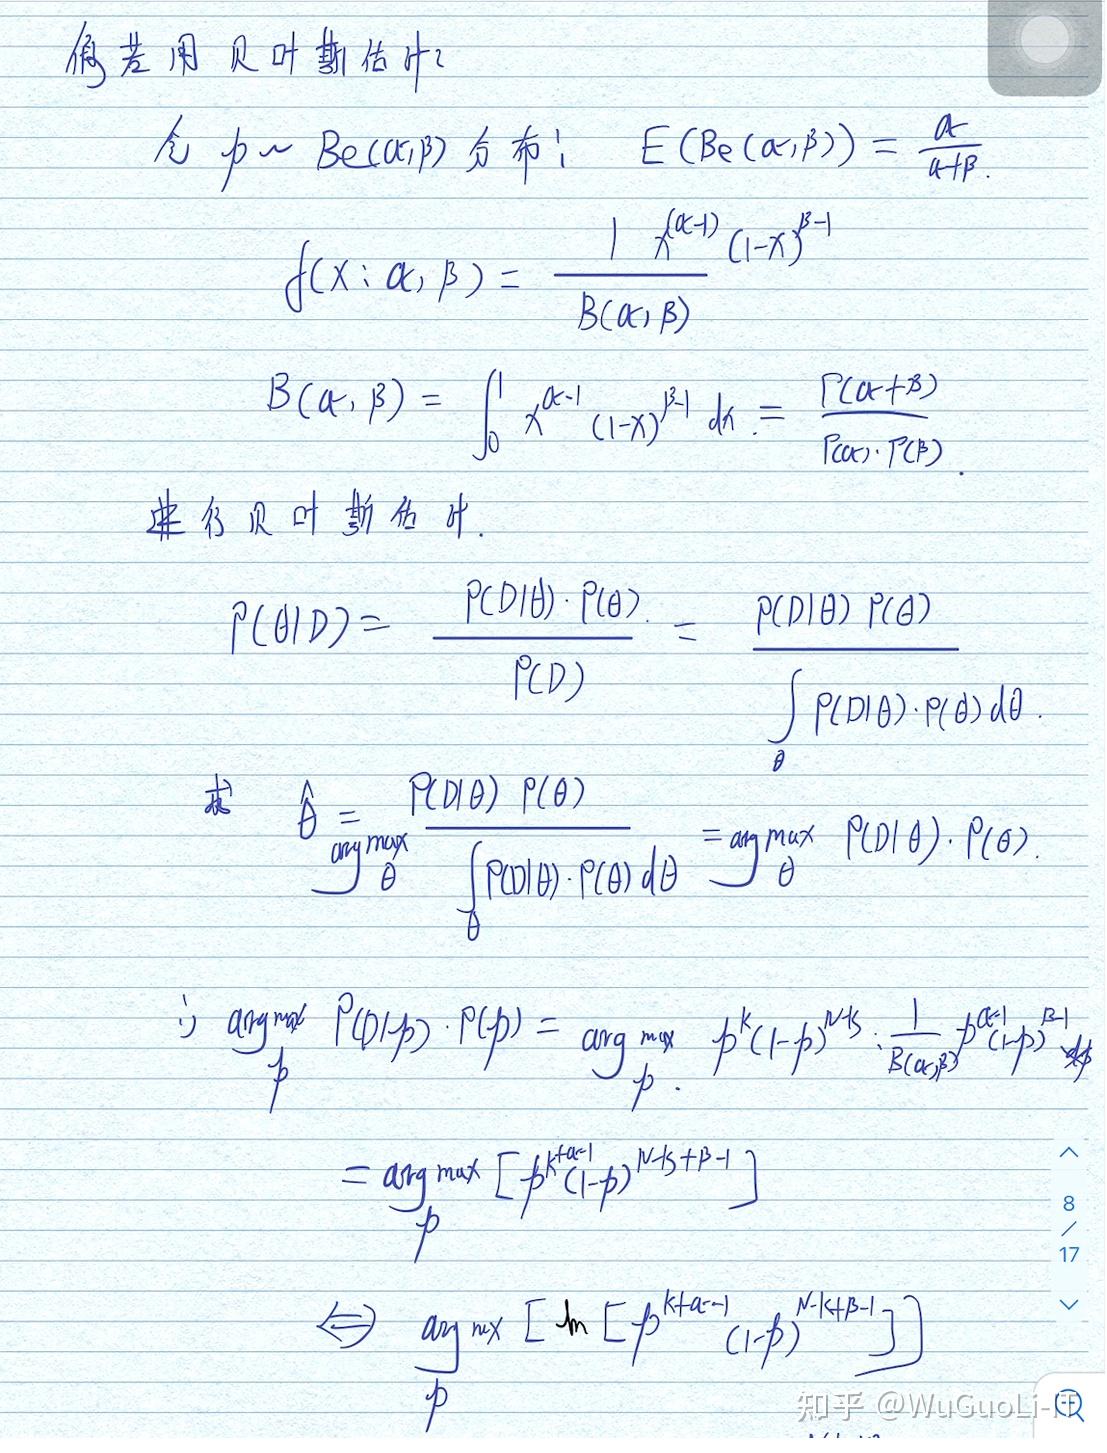 假若用贝叶斯估计:
令 p ~ Be(α,β) 分布; E(Be(α,β)) = α/(α+β).
f(x; α, β) = 1 x^(α-1) (1-x)^(β-1) / B(α, β)
B(α, β) = ∫_0^1 x^(α-1) (1-x)^(β-1) dx. = Γ(α+β) / Γ(α)·Γ(β).
进行贝叶斯估计.
P(θ|D) = P(D|θ)·P(θ). / P(D) = P(D|θ) P(θ) / ∫_θ P(D|θ)·P(θ) dθ.
求 θ̂ = argmax_θ P(D|θ) P(θ) / ∫_θ P(D|θ)·P(θ) dθ = argmax_θ P(D|θ)·P(θ).
argmax_p P(D|p)·P(p) = argmax_p. p^k (1-p)^(N-k) · 1/B(α,β) p^(α-1) (1-p)^(β-1)
= argmax_p [p^(k+α-1) (1-p)^(N-k+β-1)]
⇔ argmax_p [ln [p^(k+α-1) (1-p)^(N-k+β-1)]]
8
/
17
知乎 @WuGuoLi-IT